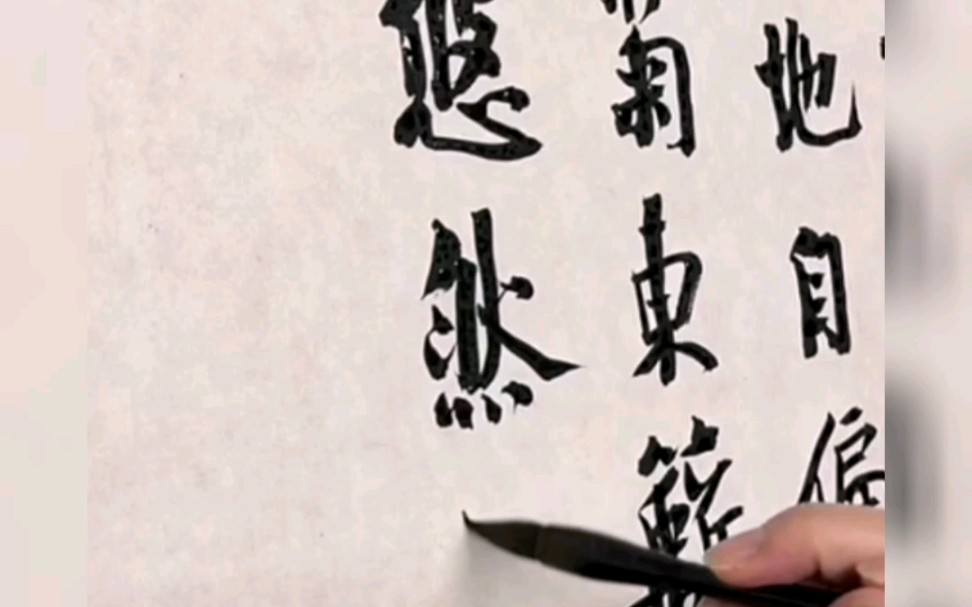 地自偏
菊東籬
悠然